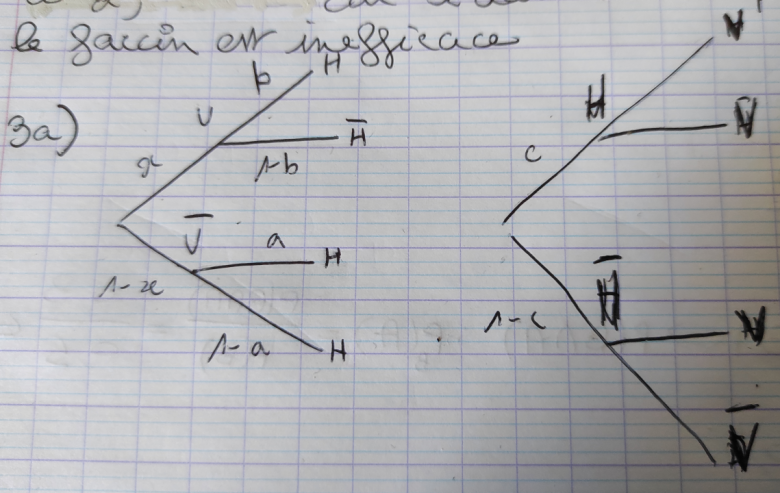 le vaccin est inefficace
3a)
b H
V
x
1-b H̅
V̅ a H
1-x
1-a H
V
H
c V̅
H̅
1-c V
V̅